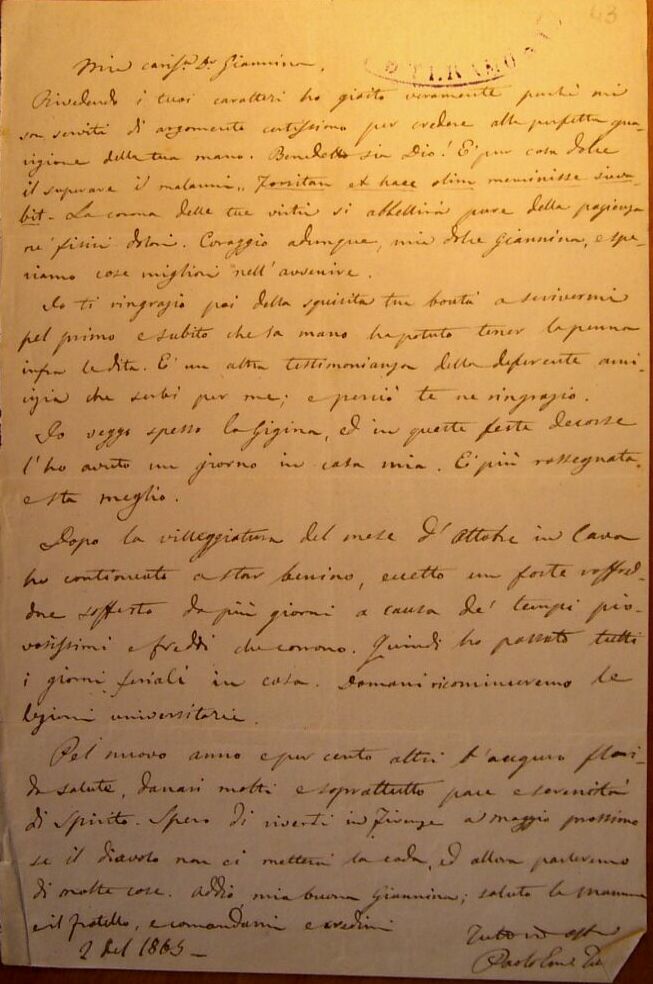 43
TERAMO
Mia cariss. D. Giannina,
Rivedendo i tuoi caratteri ho gioito veramente perché mi
son serviti di argomento certissimo per credere alla perfetta gua-
rigione della tua mano. Benedetto sia Dio! E' pur cosa dolce
il superare i malanni,, Forsitan et haec olim meminisse iuva-
bit. La corona delle tue virtù si abbellirà pure della pazienza
ne' fisici dolori. Coraggio adunque, mia dolce Giannina, e spe-
riamo cose migliori nell'avvenire.
Io ti ringrazio poi della squisita tua bontà a scrivermi
pel primo e subito che la mano ha potuto tener la penna
infra le dita. E' un altra testimonianza della deferente ami-
cizia che serbi per me; e perciò te ne ringrazio.
Io veggo spesso la Gigina, ed in queste feste decorse
l'ho avuto un giorno in casa mia. E' più rassegnata,
e sta meglio.
Dopo la villeggiatura del mese d'Ottobre in Cava
ho continuato a star benino, eccetto un forte raffred-
dore sofferto da più giorni a causa de' tempi pio-
vosissimi e freddi che corrono. Quindi ho passato tutti
i giorni feriali in casa. Domani ricominceremo le
lezioni universitarie.
Pel nuovo anno e per cento altri t'auguro flori-
da salute, danari molti e soprattutto pace e serenità
di Spirito. Spero di riverti in Firenze a maggio prossimo
se il diavolo non ci metterà la coda, ed allora parleremo
di molte cose. Addio, mia buona Giannina; saluta la mamma
e il fratello, e comandami e credimi
2 del 1865 -
Tutto
Paolo